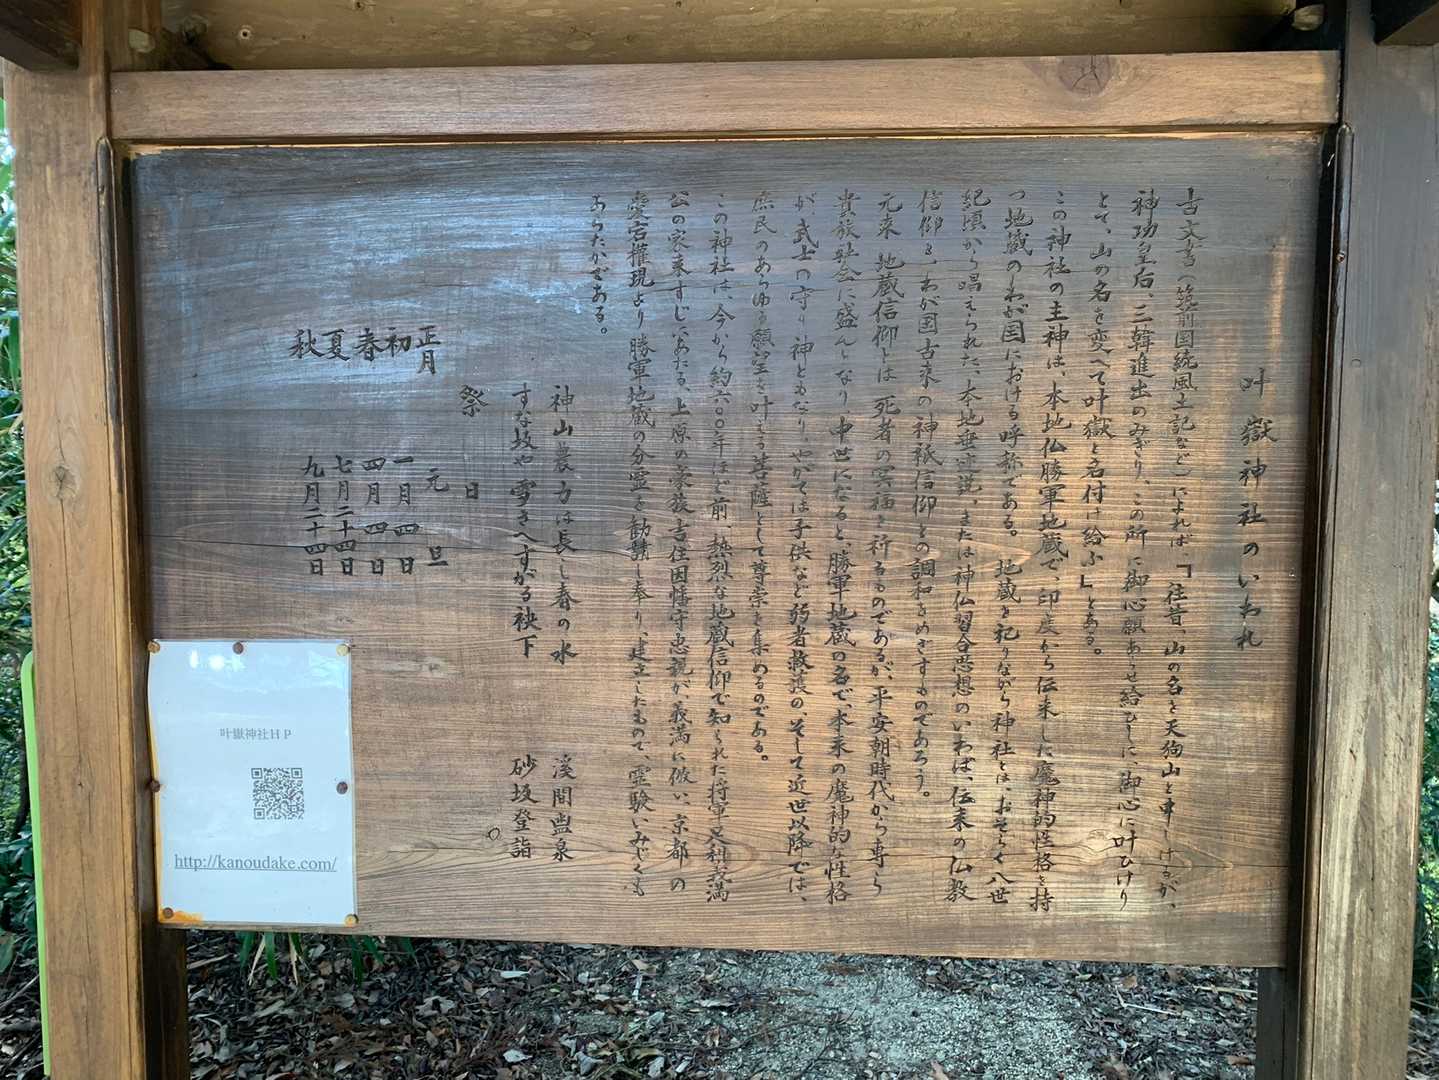 叶嶽神社のいわれ
古文書(筑前国続風土記など)によれば「往昔、山の名を天狗山と申しけるが、
神功皇后、三韓進出のみぎり、この所に御心願あらせ給ひしに、御心に叶ひけり
とて、山の名を変へて叶嶽と名付け給ふ」とある。
この神社の主神は、本地仏勝軍地蔵で、印度から伝来した魔神的性格を持
つ地蔵のわが国における呼称である。地蔵を祀りながら神社とは、おそらく八世
紀頃から唱えられた、本地垂迹説、または神仏習合思想のいわば、伝来の仏教
信仰とわが国古来の神祇信仰との調和をめざすものであろう。
元来地蔵信仰とは死者の冥福を祈るものであるが、平安朝時代から専ら
貴族社会に盛んとなり中世になると、勝軍地蔵の名で、本来の魔神的な性格
が武士の守り神ともなり、やがては子供など弱者救護の、そして近世以降では、
庶民のあらゆる願望を叶える菩薩として尊崇を集めるのである。
この神社は、今から約六〇〇年ほど前、熱烈な地蔵信仰で知られた将軍足利義満
公の家来すじにあたる、上原の豪族吉住因幡守忠親が、義満に倣い、京都の
愛宕権現より勝軍地蔵の分霊を勧請し奉り、建立したもので、霊験いみじくも
あらたかである。
神山農力は長し春の水 溪間盥泉
すな坂や雪きへすがる袂下 砂坂登詣
祭日
正月 元旦
初春 一月四日
春 四月四日
夏 七月二十四日
秋 九月二十四日
叶嶽神社HP
http://kanoudake.com/